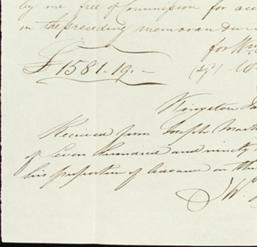 by me free of Commission for acc
in the preceding memorandum
for Wm
£1581.19.-
(sg'd)
Kingston Ja
Received from Joseph Mark
of Seven Hundred and ninety
his proportion of
on the